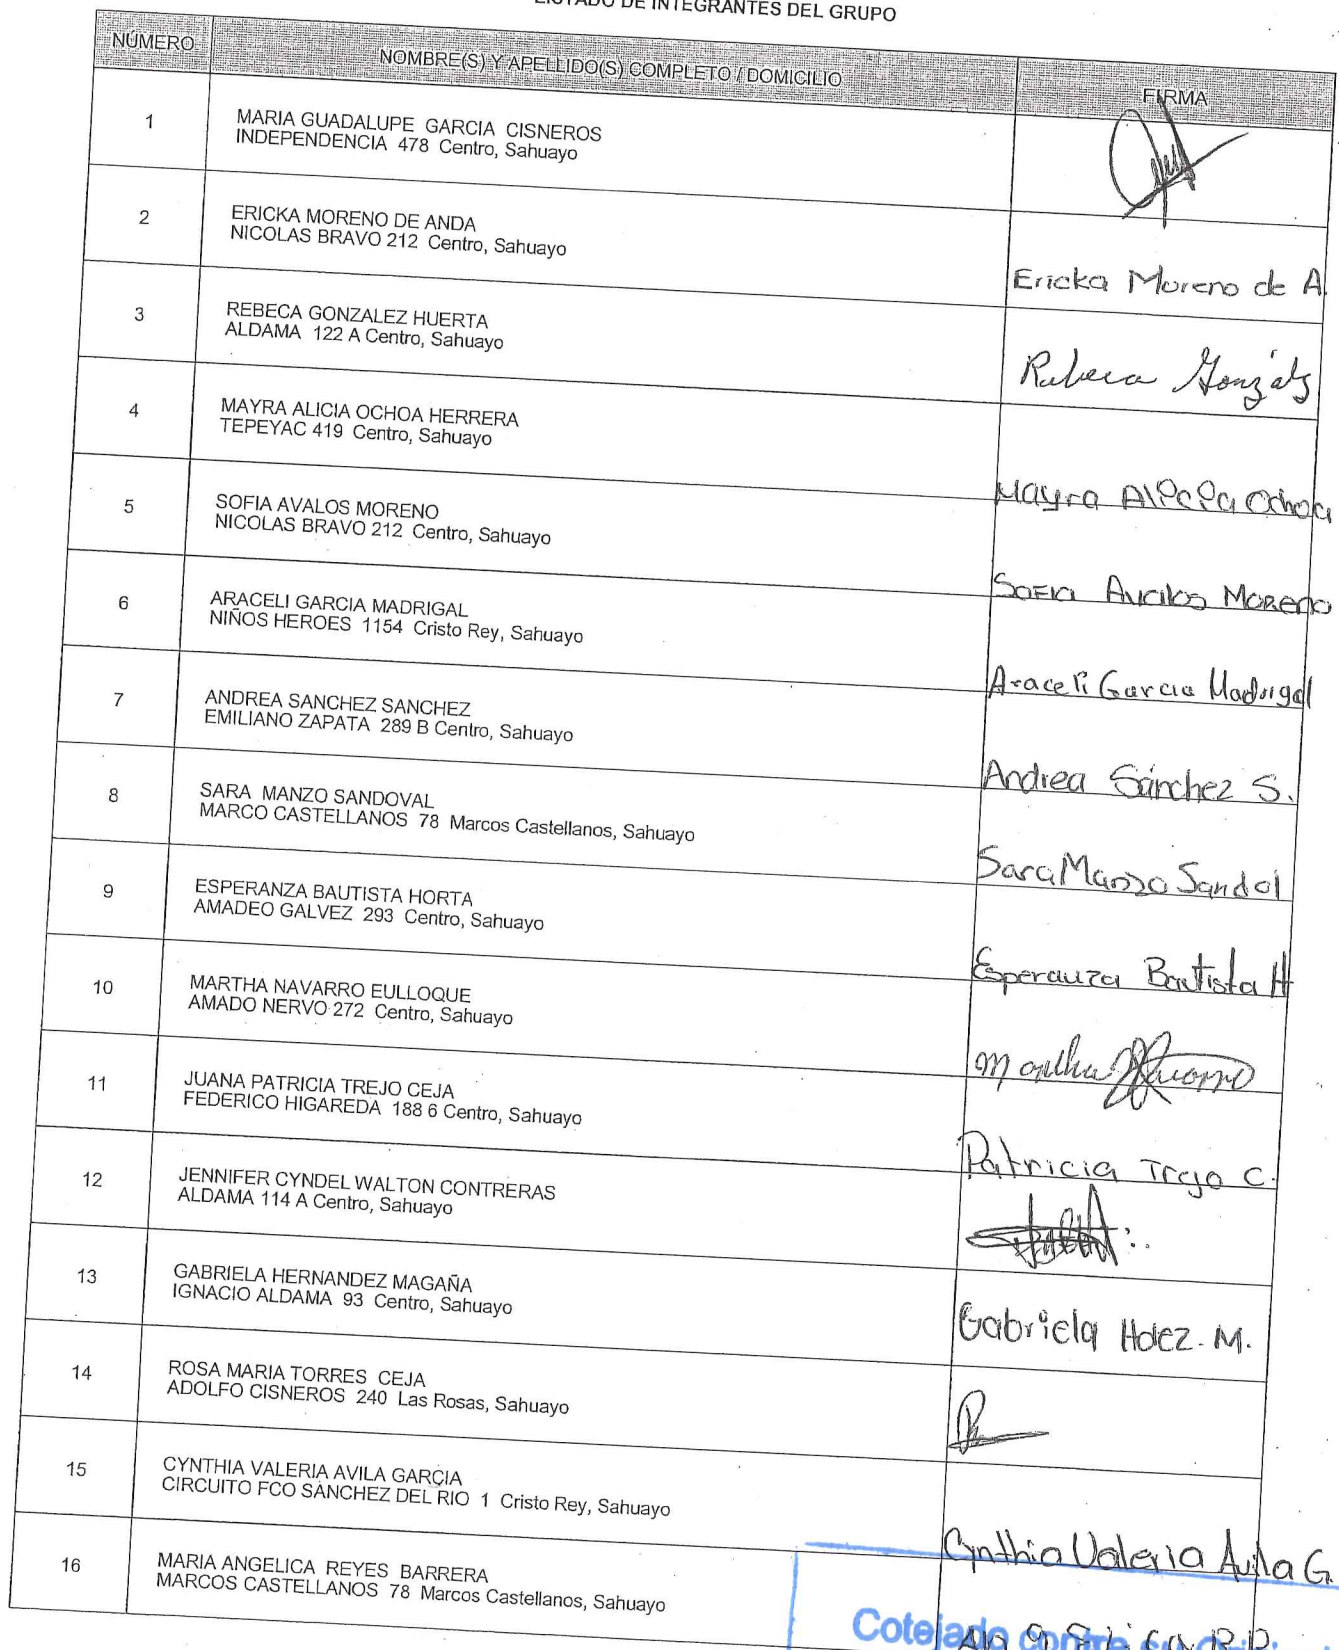 LISTADO DE INTEGRANTES DEL GRUPO
NÚMERO NOMBRE(S) Y APELLIDO(S) COMPLETO / DOMICILIO FIRMA
1 MARIA GUADALUPE GARCIA CISNEROS
INDEPENDENCIA 478 Centro, Sahuayo
2 ERICKA MORENO DE ANDA
NICOLAS BRAVO 212 Centro, Sahuayo
Ericka Moreno de A.
3 REBECA GONZALEZ HUERTA
ALDAMA 122 A Centro, Sahuayo
Rebeca Gonzálz
4 MAYRA ALICIA OCHOA HERRERA
TEPEYAC 419 Centro, Sahuayo
Mayra Alicia Ochoa
5 SOFIA AVALOS MORENO
NICOLAS BRAVO 212 Centro, Sahuayo
Sofia Avalos Moreno
6 ARACELI GARCIA MADRIGAL
NIÑOS HEROES 1154 Cristo Rey, Sahuayo
Araceli Garcia Madrigal
7 ANDREA SANCHEZ SANCHEZ
EMILIANO ZAPATA 289 B Centro, Sahuayo
Andrea Sánchez S.
8 SARA MANZO SANDOVAL
MARCO CASTELLANOS 78 Marcos Castellanos, Sahuayo
Sara Manzo Sandol
9 ESPERANZA BAUTISTA HORTA
AMADEO GALVEZ 293 Centro, Sahuayo
Esperanza Bautista H
10 MARTHA NAVARRO EULLOQUE
AMADO NERVO 272 Centro, Sahuayo
Martha
11 JUANA PATRICIA TREJO CEJA
FEDERICO HIGAREDA 188 6 Centro, Sahuayo
Patricia Trejo C.
12 JENNIFER CYNDEL WALTON CONTRERAS
ALDAMA 114 A Centro, Sahuayo
13 GABRIELA HERNANDEZ MAGAÑA
IGNACIO ALDAMA 93 Centro, Sahuayo
Gabriela Hdez. M.
14 ROSA MARIA TORRES CEJA
ADOLFO CISNEROS 240 Las Rosas, Sahuayo
15 CYNTHIA VALERIA AVILA GARCIA
CIRCUITO FCO SANCHEZ DEL RIO 1 Cristo Rey, Sahuayo
Cynthia Valeria Avila G.
16 MARIA ANGELICA REYES BARRERA
MARCOS CASTELLANOS 78 Marcos Castellanos, Sahuayo
Cotejado contra su